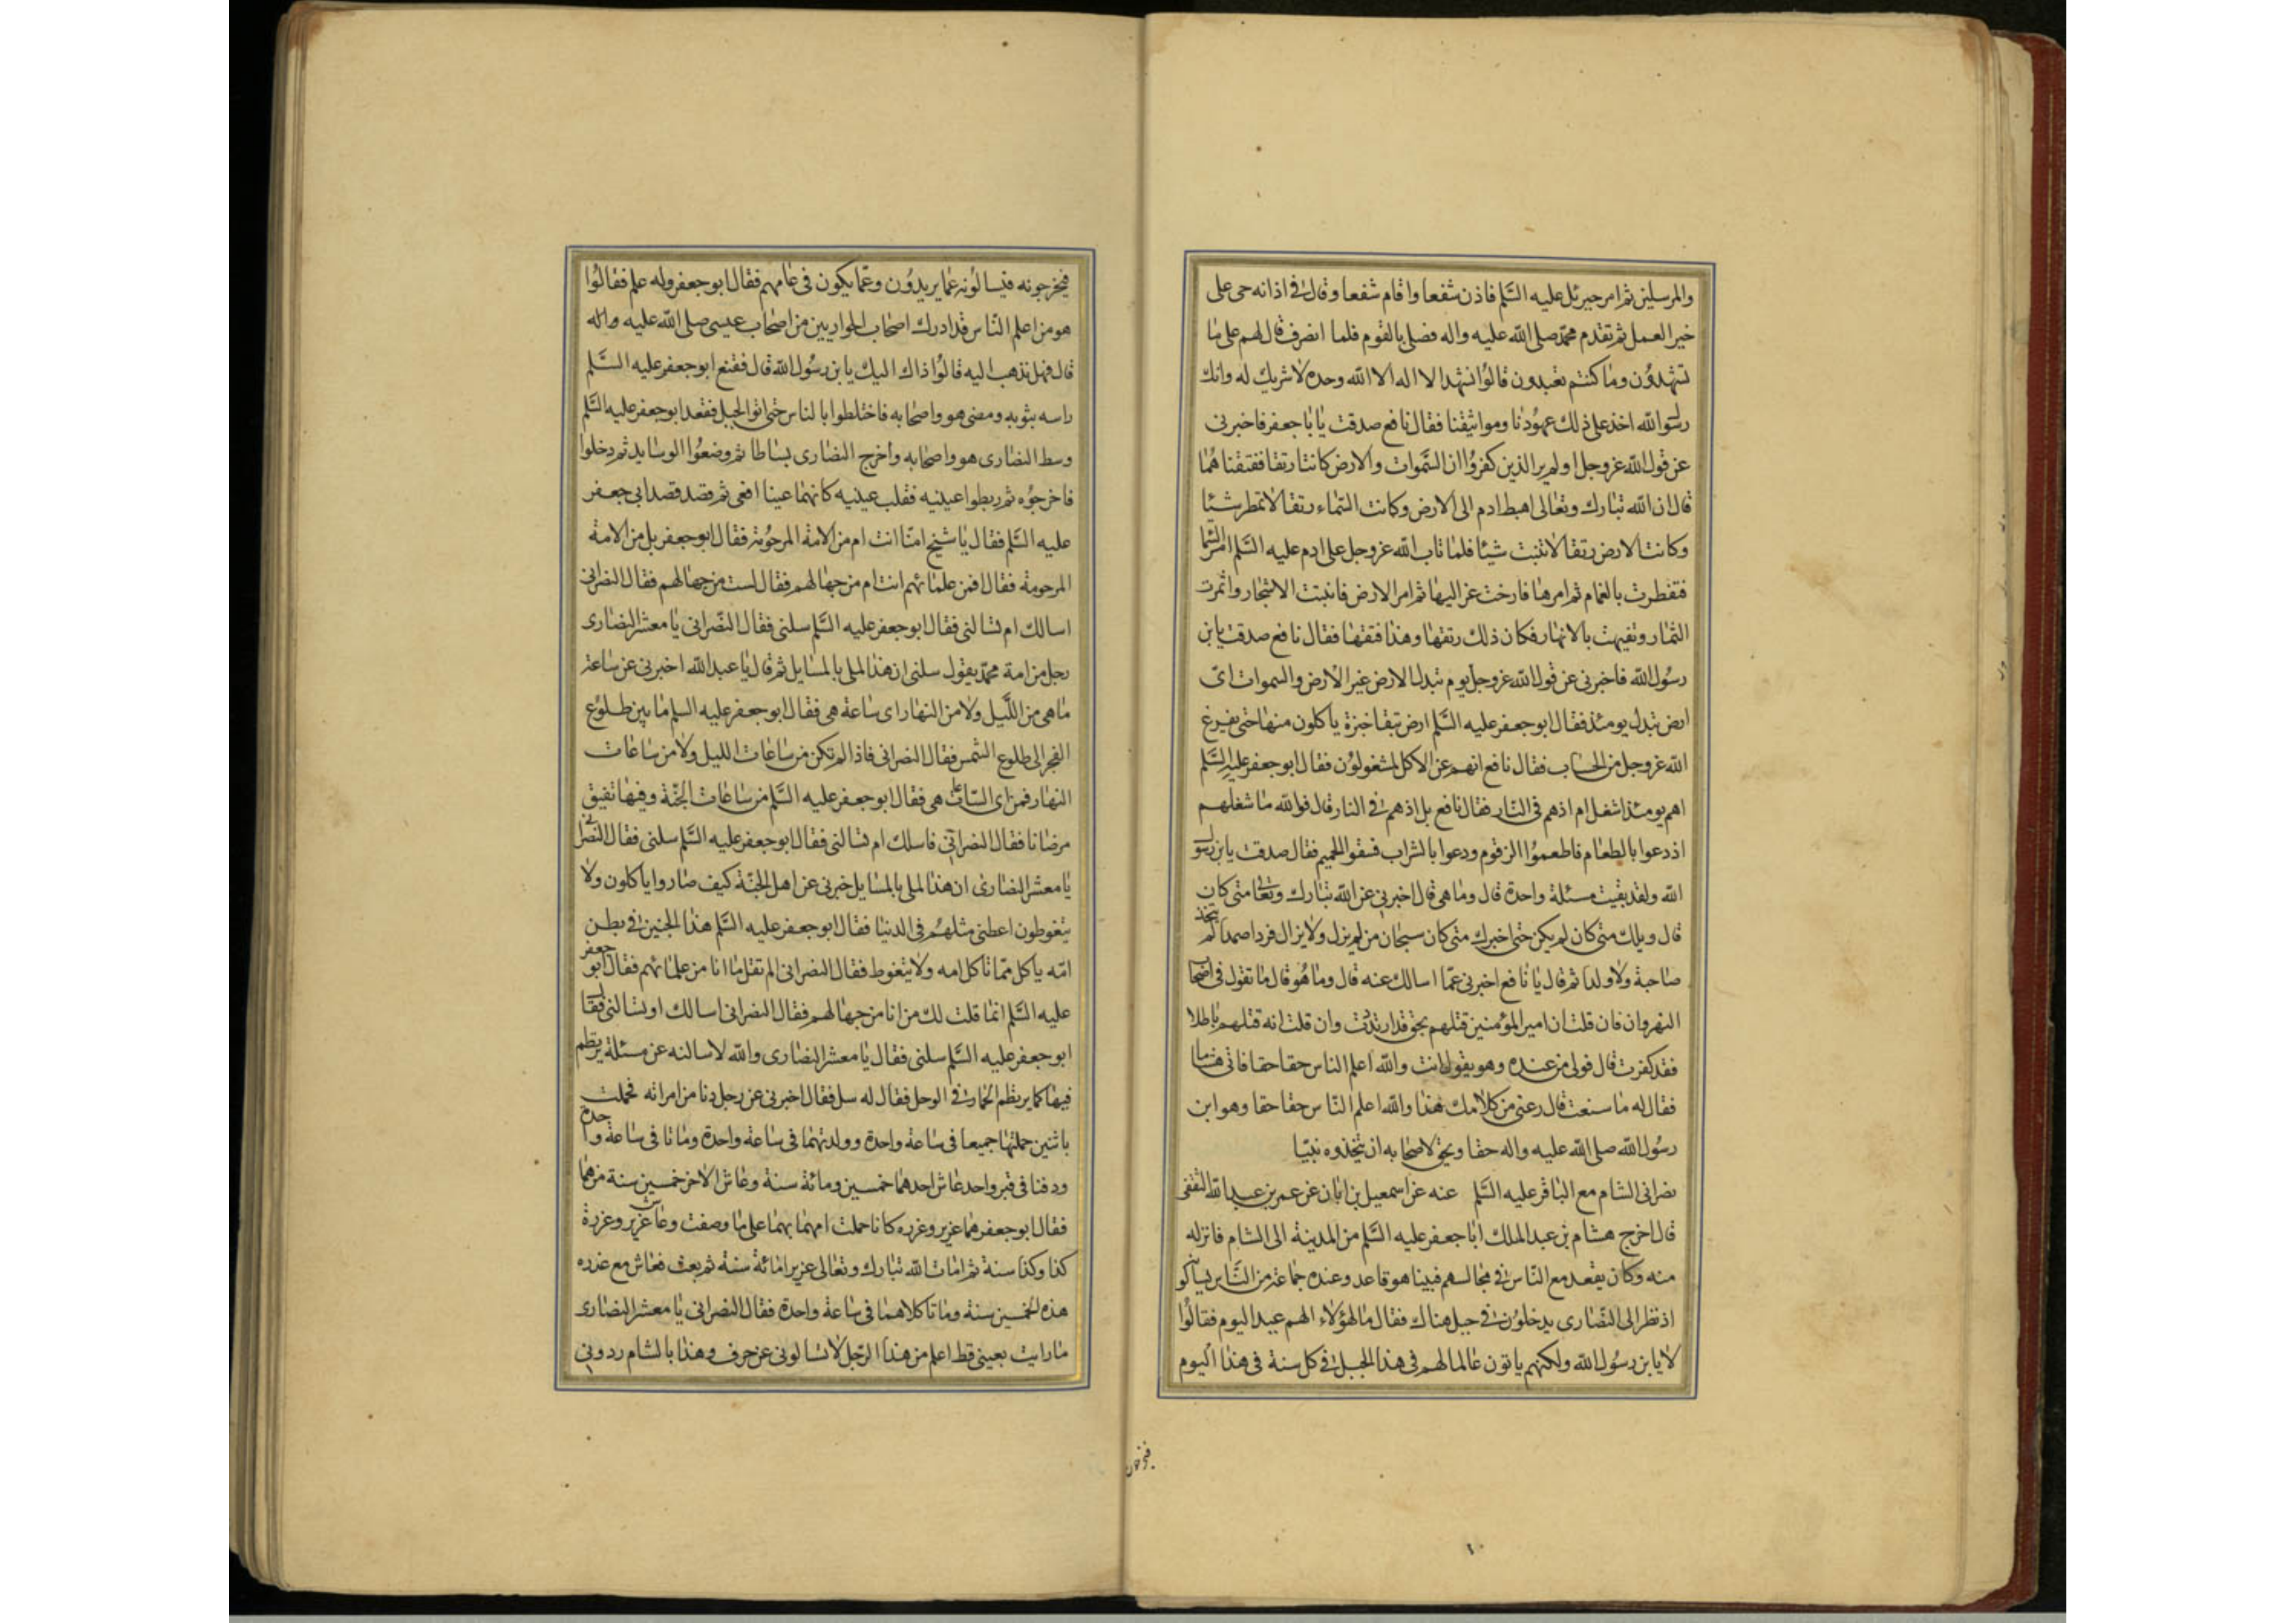 والمرسلين ثم امر جبرئل عليه السَّلم فاذن شفعا واقام شفعا وقال في اذانه حى على
خير العمل ثم تقدم محمّد صلى الله عليه واله فصلى بالقوم فلما انصرف قال لهم على ما
تشهدُون وما كنتم تعبدون قالُوا نشهد ان لا اله الا الله وحده لا شريك له وانك
رسُول الله اخذ على ذلك عهُودنا ومواثيقنا فقال نافع صدقت يا باجعفر فاخبرنى
عن قول الله عز وجل اولم ير الذين كفرُوا ان السَّموات والارض كانتا رتقا ففتقنا هُما
قال ان الله تبارك وتعالى اهبط ادم الى الارض وكانت السّماء رتقا لا تمطر شيئا
وكانت الارض رتقا لا تنبت شيئا فلما تاب الله عز وجل على ادم عليه السَّلم امر السّما
فتفطرت بالغمام ثم امرها فارخت عزاليها ثم امر الارض فانبتت الاشجار واثمرت
الثمار وتفيهت بالانهار فكان ذلك رتقها وهذا فتقها فقال نافع صدقت يا بن
رسُول الله فاخبرنى عن قول الله عز وجل يوم تبدل الارض غير الارض والسموات اىّ
ارض تبدل يومئذ فقال ابو جعفر عليه السَّلم ارض تبقا خبزة ياكلون منها حتى يفرغ
الله عز وجل من الحساب فقال نافع انهم عن الاكل لمشغولوُن فقال ابو جعفر عليه السَّلم
اهم يومئذ اشغل ام اذهم فى النار فقال نافع بل اذهم في النار قال فوالله ما شغلهم
اذ دعوا بالطعام فاطعموُا الزقوم ودعوا بالشراب فسقوا الحميم فقال صدقت يا بن رسو
الله ولقد بقيت مسئلة واحدة قال وما هى قال اخبرنى عن الله تبارك وتعالى متى كان
قال ويلك متى كان لم يكن حتى اخبرك متى كان سبحان من لم يزل ولا يزال فردا صمدا لم يتخذ
صاحبة ولا ولدا ثم قال يا نافع اخبرنى عمّا اسالك عنه قال وما هُو قال ما تقول فى اصحا
النهروان فان قلت ان امير المؤمنين قتلهم بحق قد ارتددت وان قلت انه قتلهم باطلا
فقد كفرت قال فولى من عنده وهو يقول انت والله اعلم الناس حقا حقا فاتى هشاما
فقال له ما صنعت قال دعنى من كلامك هذا والله اعلم النّاس حقا حقا وهو ابن
رسُول الله صلى الله عليه واله حقا ويحق لاصحابه ان يتخذوه نبيّا
نصرانى الشام مع الباقر عليه السَّلم عنه عن اسمعيل بن ابان عن عمر بن عبد الله الثقفى
قال اخرج هشام بن عبد الملك ابا جعفر عليه السَّلم من المدينة الى الشام فانزله
منه وكان يقعد مع النّاس في مجالسهم فبينا هو قاعد وعنده جماعة من النَّاس يسالو
اذ نظر الى النّصارى يدخلوُن في جبل هناك فقال ما لهؤلاء الهم عيد اليوم فقالُوا
لا يا بن رسُول الله ولكنهم ياتون عالما لهم فى هذا الجبل في كل سنة فى هذا اليوم
فيخرجونه
فيخرجونه فيسالُونه عمّا يريدُون وعمّا يكون فى عامهم فقال ابو جعفر وله علم فقالُوا
هو من اعلم النّاس قد ادرك اصحاب الحواريين من اصحاب عيسى صلى الله عليه واله
قال فهل نذهب اليه قالُوا ذاك اليك يا بن رسُول الله قال فقنع ابو جعفر عليه السَّلم
راسه بثوبه ومضى هو واصحابه فاختلطوا بالناس حتى اتوا الجبل فقعد ابو جعفر عليه السَّلم
وسط النصارى هو واصحابه واخرج النصارى بساطا ثم وضعُوا الوسايد ثم دخلوا
فاخرجوُه ثم ربطوا عينيه فقلب عينيه كانهما عينا افعى ثم قصد قصد ابى جعفر
عليه السَّلم فقال يا شيخ امنّا انت ام من الامة المرحوُمة فقال ابو جعفر بل من الامة
المرحومة فقال افمن علمائهم انت ام من جهالهم فقال لست من جهالهم فقال النصرانى
اسالك ام تسالنى فقال ابو جعفر عليه السَّلم سلنى فقال النّصرانى يا معشر النصارى
رجل من امة محمّد يقول سلنى ان هذا لملى بالمسايل ثم قال يا عبد الله اخبرنى عن ساعة
ما هى من اللَّيل ولا من النهار اى ساعة هى فقال ابو جعفر عليه السلم ما بين طلوُع
الفجر الى طلوع الشمس فقال النصرانى فاذا لم تكن من ساعات الليل ولا من ساعات
النهار فمن اى السّاعات هى فقال ابو جعفر عليه السَّلم من ساعات الجنّة وفيها تفيق
مرضانا فقال النصرانى فاسلك ام تسالنى فقال ابو جعفر عليه السَّلم سلنى فقال النصرانى
يا معشر النصارى ان هذا لملى بالمسايل خبرنى عن اهل الجنّة كيف صاروا ياكلون ولا
يتغوطون اعطنى مثلهُم فى الدنيا فقال ابو جعفر عليه السَّلم هذا الجنين في بطن
امّه ياكل ممّا تاكل امه ولا يتغوط فقال النصرانى الم تقل ما انا من علمائهم فقال ابو جعفر
عليه السَّلم انما قلت لك من انا من جهالهم فقال النصرانى اسالك او تسالنى فقال
ابو جعفر عليه السَّلم سلنى فقال يا معشر النصارى والله لاسالنه عن مسئلة يرتطم
فيها كما يرتطم الحمار في الوحل فقال له سل فقال اخبرنى عن رجل دنا من امراته فحملت
باثنين حملتها جميعا فى ساعة واحدة وولدتهما فى ساعة واحدة وماتا فى ساعة واحدة
ودفنا فى قبر واحد عاش احدهما خمسين ومائة سنة وعاش الاخر خمسين سنة من هما
فقال ابو جعفر هما عزير وعزره كانا حملت امهما بهما على ما وصفت وعاش عزير وعزرة
كذا وكذا سنة ثم امات الله تبارك وتعالى عزيرا مائة سنة ثم بعث فعاش مع عزره
هذه الخمسين سنة وماتا كلاهما فى ساعة واحدة فقال النصرانى يا معشر النصارى
ما رايت بعينى قط اعلم من هذا الرّجل لا تسالونى عن حرف وهذا بالشام ردونى